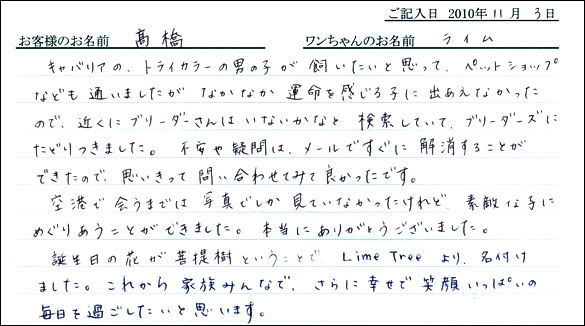 ご記入日 2010年11月3日
お客様のお名前 高橋 ワンちゃんのお名前 ライム
キャバリアの、トライカラーの男の子が 飼いたいと思って、ペットショップ
なども 通いましたが なかなか 運命を感じる子に 出あえなかった
ので、近くにブリーダーさんは いないかなと 検索していて、ブリーダーズに
たどりつきました。 不安や疑問は、メールですぐに 解消することが
できたので、思いきって 問い合わせてみて良かったです。
空港で会うまでは 写真でしか見ていなかったけれど、素敵な子に
めぐりあうことができました。本当にありがとうございました。
誕生日の花が菩提樹ということで、Lime Tree より、名付け
ました。これから 家族みんなで、さらに 幸せで 笑顔いっぱいの
毎日を過ごしたいと思います。